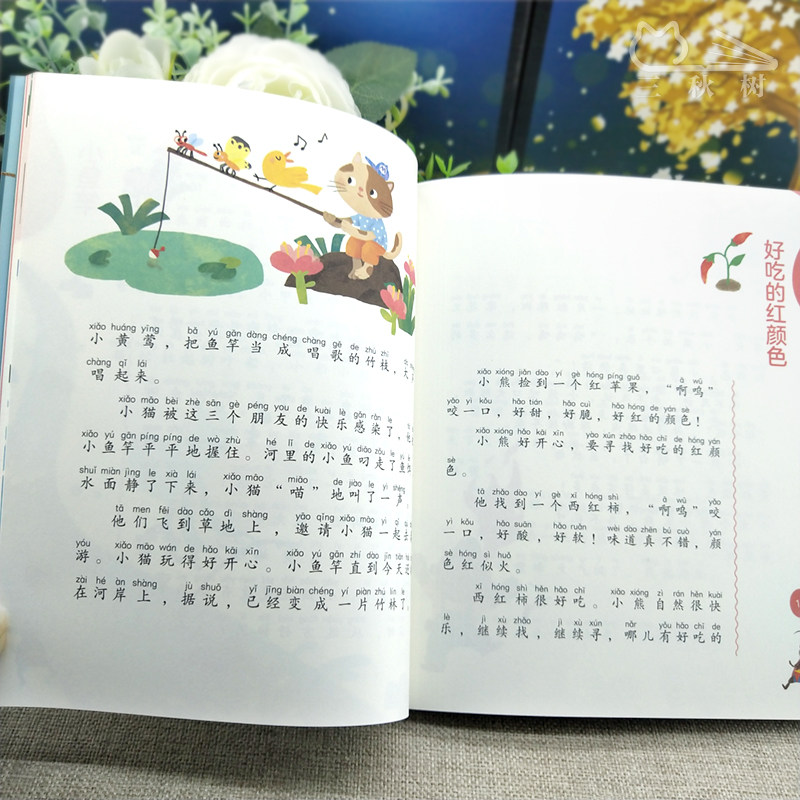 三秋树
xiǎo huáng yīng bǎ yú gān dàng chéng chàng gē de zhú zhī
小黄莺，把鱼竿当成唱歌的竹枝，
chàng qǐ lái
唱起来。
xiǎo māo bèi zhè sān gè péng you de kuài lè gǎn rǎn le
小猫被这三个朋友的快乐感染了，
xiǎo yú gān píng píng de wò zhù hé lǐ de xiǎo yú diāo zǒu le
小鱼竿平平地握住。河里的小鱼叼走了鱼
shuǐ miàn jìng le xià lái xiǎo māo miāo de jiào le yì shēng
水面静了下来，小猫“喵”地叫了一声
tā men fēi dào cǎo dì shàng yāo qǐng xiǎo māo yì qǐ
他们飞到草地上，邀请小猫一起去
yóu xiǎo māo wán de hǎo kāi xīn xiǎo yú gān zhí dào jīn tiān
游。小猫玩得好开心。小鱼竿直到今天还
zài hé àn shàng jù shuō yǐ jīng biàn chéng yí piàn zhú lín le
在河岸上，据说，已经变成一片竹林了
好吃的红颜色
xiǎo xióng jiǎn dào yí gè hóng píng guǒ ā wū
小熊捡到一个红苹果，“啊呜”
yǎo yì kǒu hǎo tián hǎo cuì hǎo hóng de yán sè
咬一口，好甜，好脆，好红的颜色！
xiǎo xióng hǎo kāi xīn yào xún zhǎo hǎo chī de hóng yán
小熊好开心，要寻找好吃的红颜
sè
色。
tā zhǎo dào yí gè xī hóng shì ā wū yǎo
他找到一个西红柿，“啊呜”咬
yì kǒu hǎo suān hǎo ruǎn wèi dào zhēn bú cuò yán
一口，好酸，好软！味道真不错，颜
sè hóng sì huǒ
色红似火。
xī hóng shì hěn hǎo chī xiǎo xióng zì rán hěn kuài
西红柿很好吃。小熊自然很快
lè jì xù zhǎo jì xù xún nǎr yǒu hǎo chī de
乐，继续找，继续寻，哪儿有好吃的